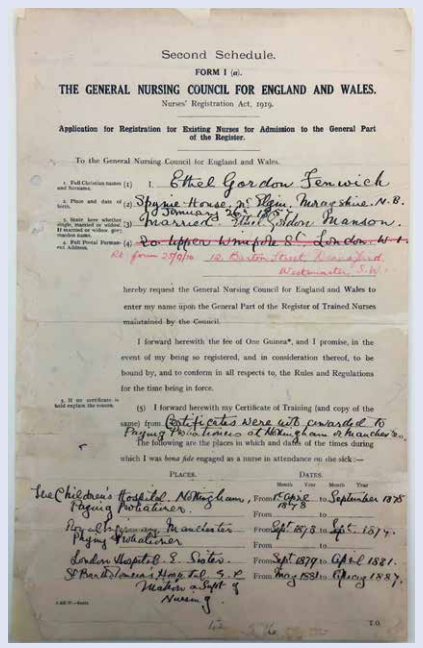 Second Schedule.
FORM I (a).
THE GENERAL NURSING COUNCIL FOR ENGLAND AND WALES.
Nurses' Registration Act, 1919.
Application for Registration for Existing Nurses for Admission to the General Part
of the Register.
To the General Nursing Council for England and Wales.
1. Full Christian names and Surname. (1) I. Ethel Gordon Fenwick
2. Place and date of birth. (2) Spynie House, Nr Elgin, Morayshire, N.B.
January 26 1857
3. State here whether single, married or widow. If married or widow, give maiden name. (3) Married. Ethel Gordon Manson.
4. Full Postal Permanent Address. (4) 20 Upper Wimpole St. London W.1
12 Barton Street
Westminster S.W.1
hereby request the General Nursing Council for England and Wales to
enter my name upon the General Part of the Register of Trained Nurses
maintained by the Council.
I forward herewith the fee of One Guinea*, and I promise, in the
event of my being so registered, and in consideration thereof, to be
bound by, and to conform in all respects to, the Rules and Regulations
for the time being in force.
5. If no certificate is held explain the reason. (5) I forward herewith my Certificate of Training (and copy of the
same) from Certificates were not awarded to
Paying Probationers at Nottingham or Manchester.
The following are the places in which and dates of the times during
which I was bona fide engaged as a nurse in attendance on the sick:—
PLACES. DATES.
Month Year Month Year
The Children's Hospital, Nottingham, From April 1878 to September 1878
Paying Probationer. From to
Royal Infirmary Manchester From Sept. 1878 to Sept. 1879.
Paying Probationer From to
London Hospital E. Sister. From Sept 1879 to April 1881.
St Bartholomew's Hospital From May 1881 to 1887.
Matron & Supt of
Nursing.
T.O.